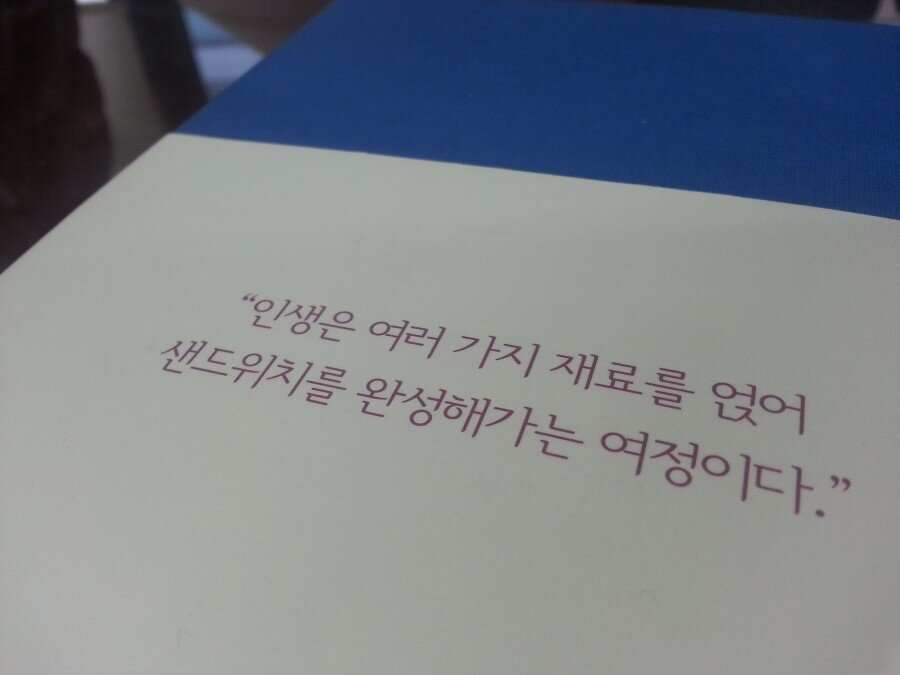 “인생은 여러 가지 재료를 얹어
샌드위치를 완성해가는 여정이다.”